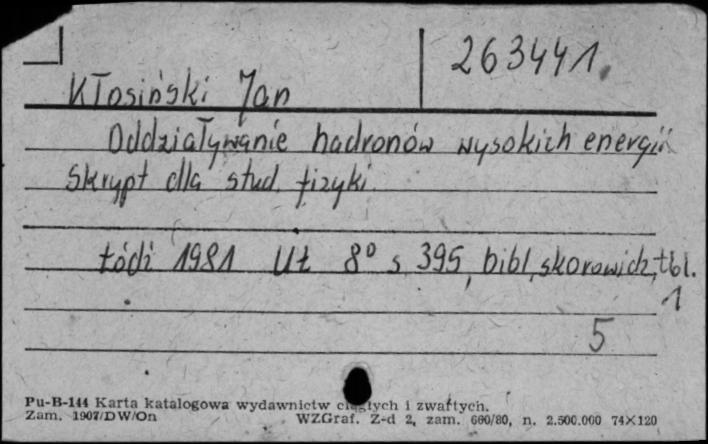 263441
Kłosiński Jan
Oddziaływanie hadronów wysokich energii
Skrypt dla stud. fizyki.
Łódź 1981 UŁ 8° s 395, bibl, skorowidz, tbl.
1
5
Pu-B-144 Karta katalogowa wydawnictw ciągłych i zwartych.
Zam. 1907/DW/On WZGraf. Z-d 2, zam. 660/80, n. 2.500.000 74×120